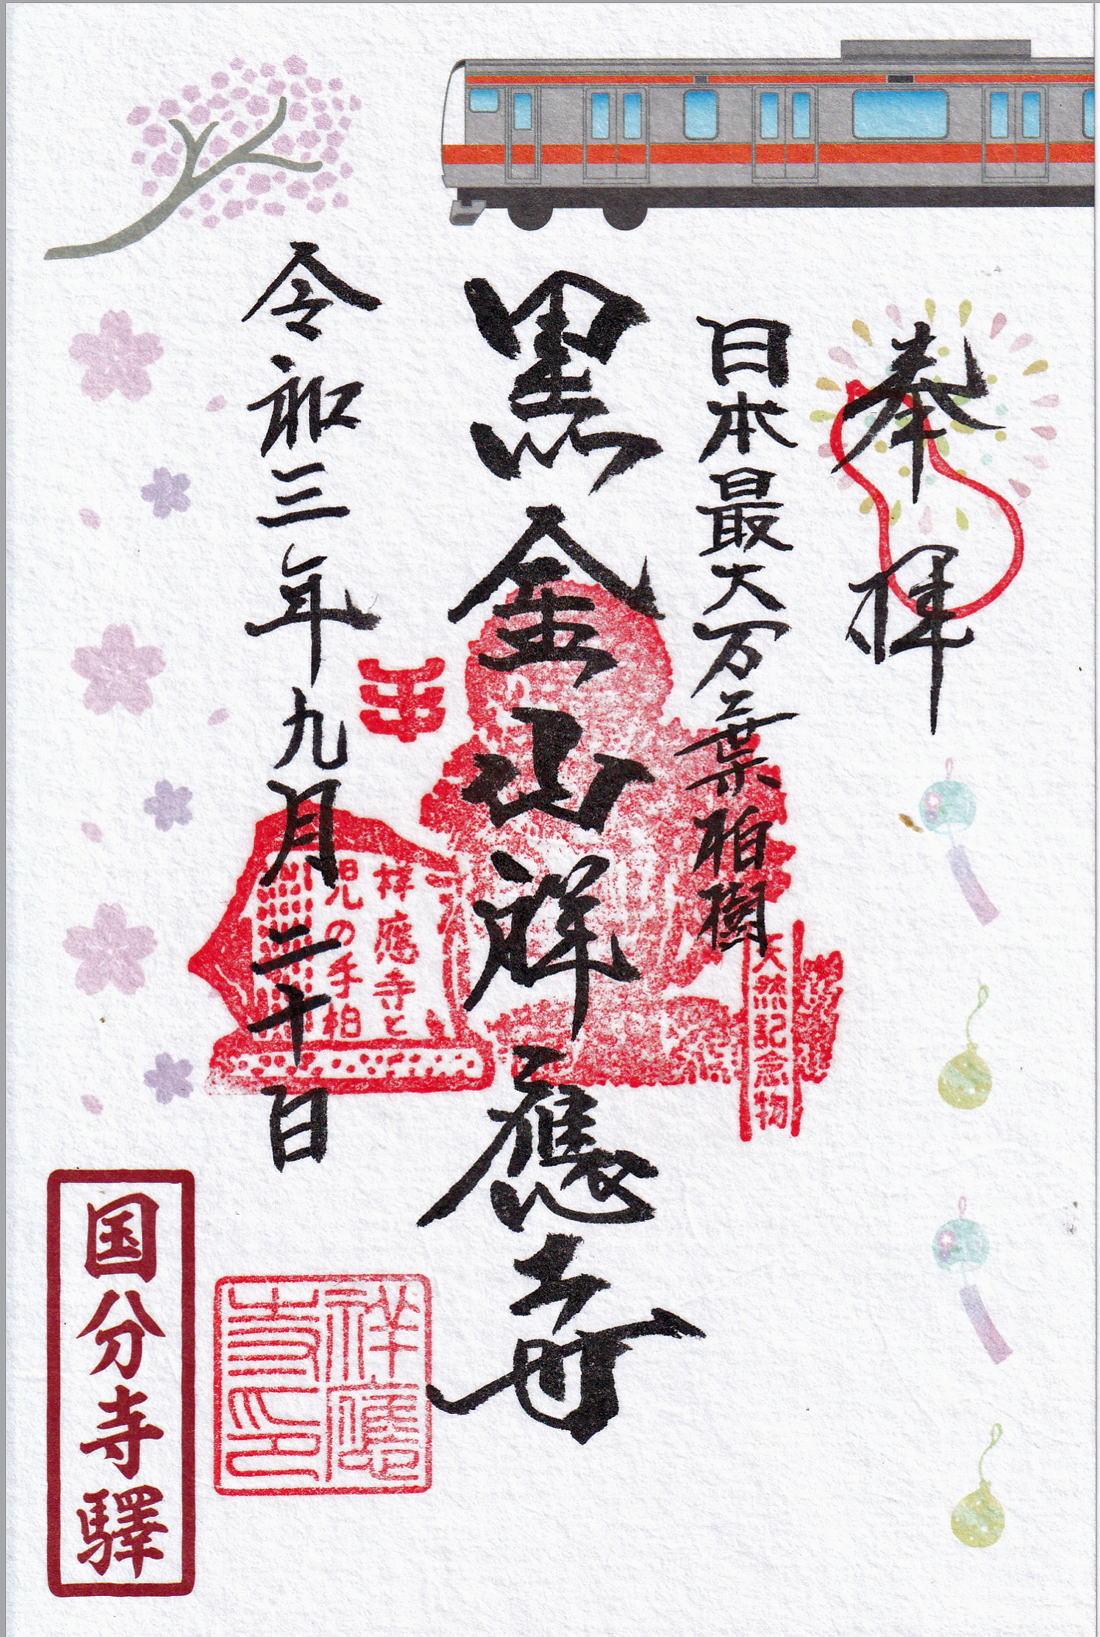 奉拝
日本最大万葉柏樹
天然記念物
黒金山祥應寺
祥應寺と
児の手柏
令和三年九月二十日
祥應
寺印
国分寺驛